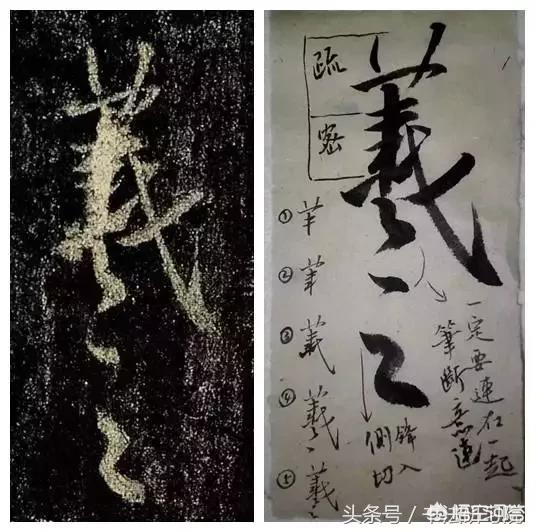 羲之
羲之
疏
密
①
②
③
④
⑤
一定要連在一起
筆斷意連
側鋒
切入
头条号 /
悟空问答